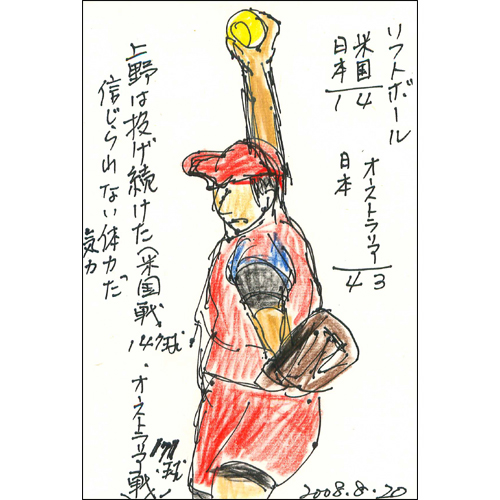 ソフトボール
米国 4
日本 1
オーストラリア 3
日本 4
上野は投げ続けた(米国戦、147球・オーストラリア戦、171球)
信じられない体力だ
気力
2008.8.20